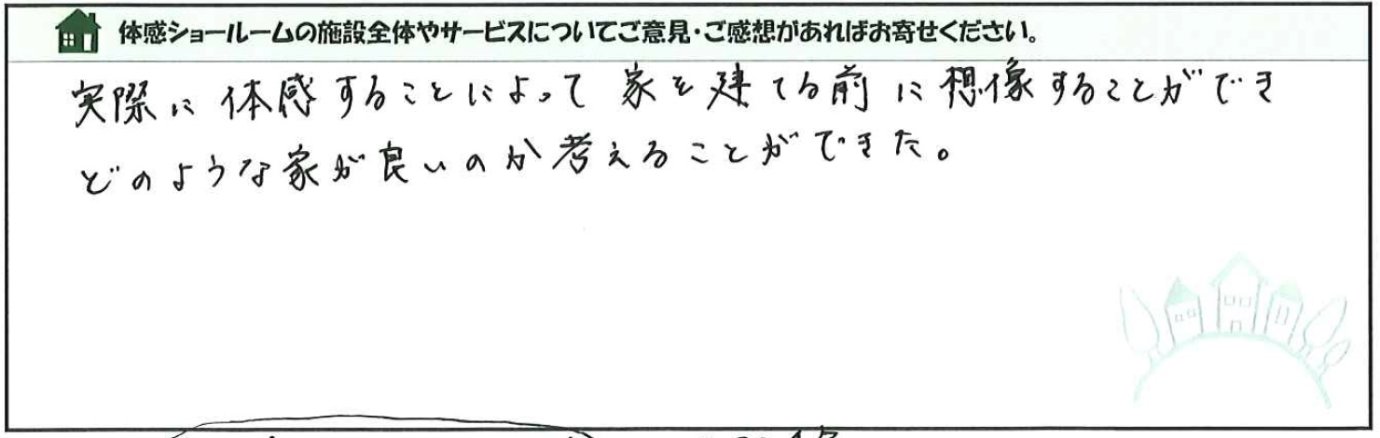 体感ショールームの施設全体やサービスについてご意見・ご感想があればお寄せください。
実際に体感することによって家を建てる前に想像することができ
どのような家が良いのか考えることができた。